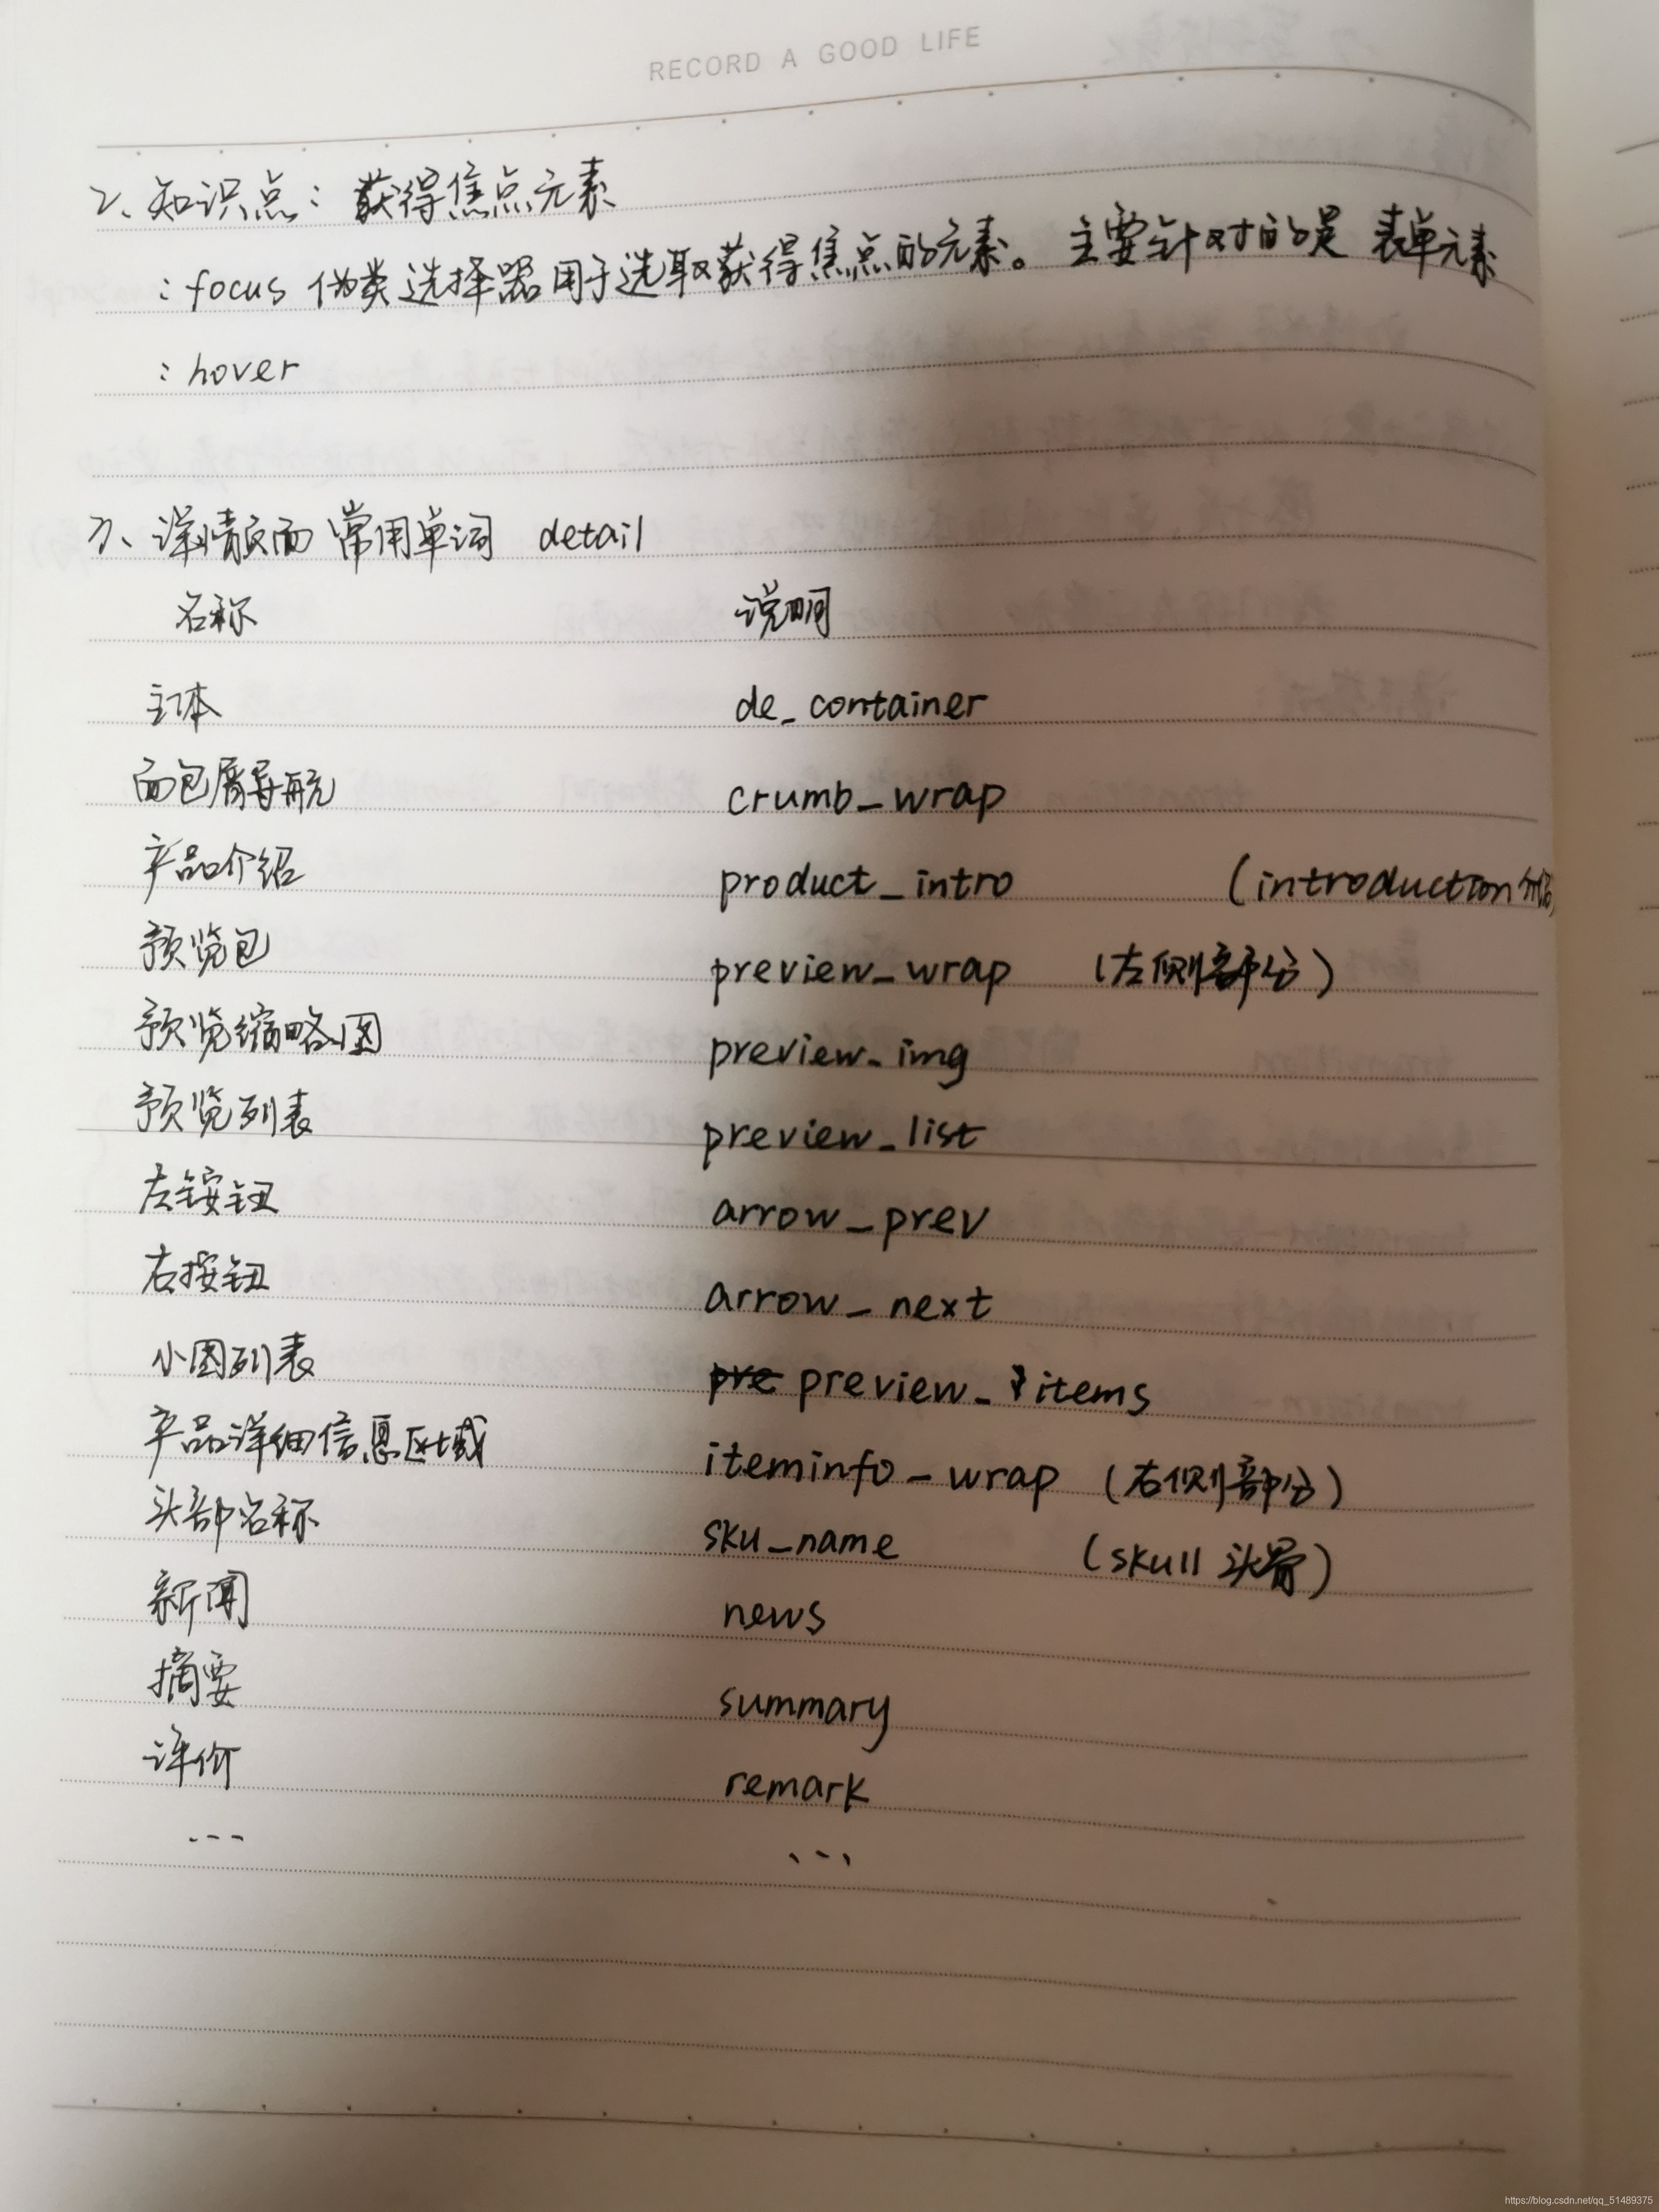 RECORD A GOOD LIFE
2、知识点：获得焦点元素
：focus 伪类选择器用于选取获得焦点的元素。主要针对的是 表单元素
：hover
3、详情页面常用单词 detail
名称 说明
主体 de_container
面包屑导航 crumb_wrap
产品介绍 product_intro (introduction介绍)
预览包 preview_wrap (左侧部分)
预览缩略图 preview_img
预览列表 preview_list
左按钮 arrow_prev
右按钮 arrow_next
小图列表 preview_items
产品详细信息区域 iteminfo_wrap (右侧部分)
头部名称 sku_name (skull 头骨)
新闻 news
摘要 summary
评价 remark
... ...
https://blog.csdn.net/qq_51489375